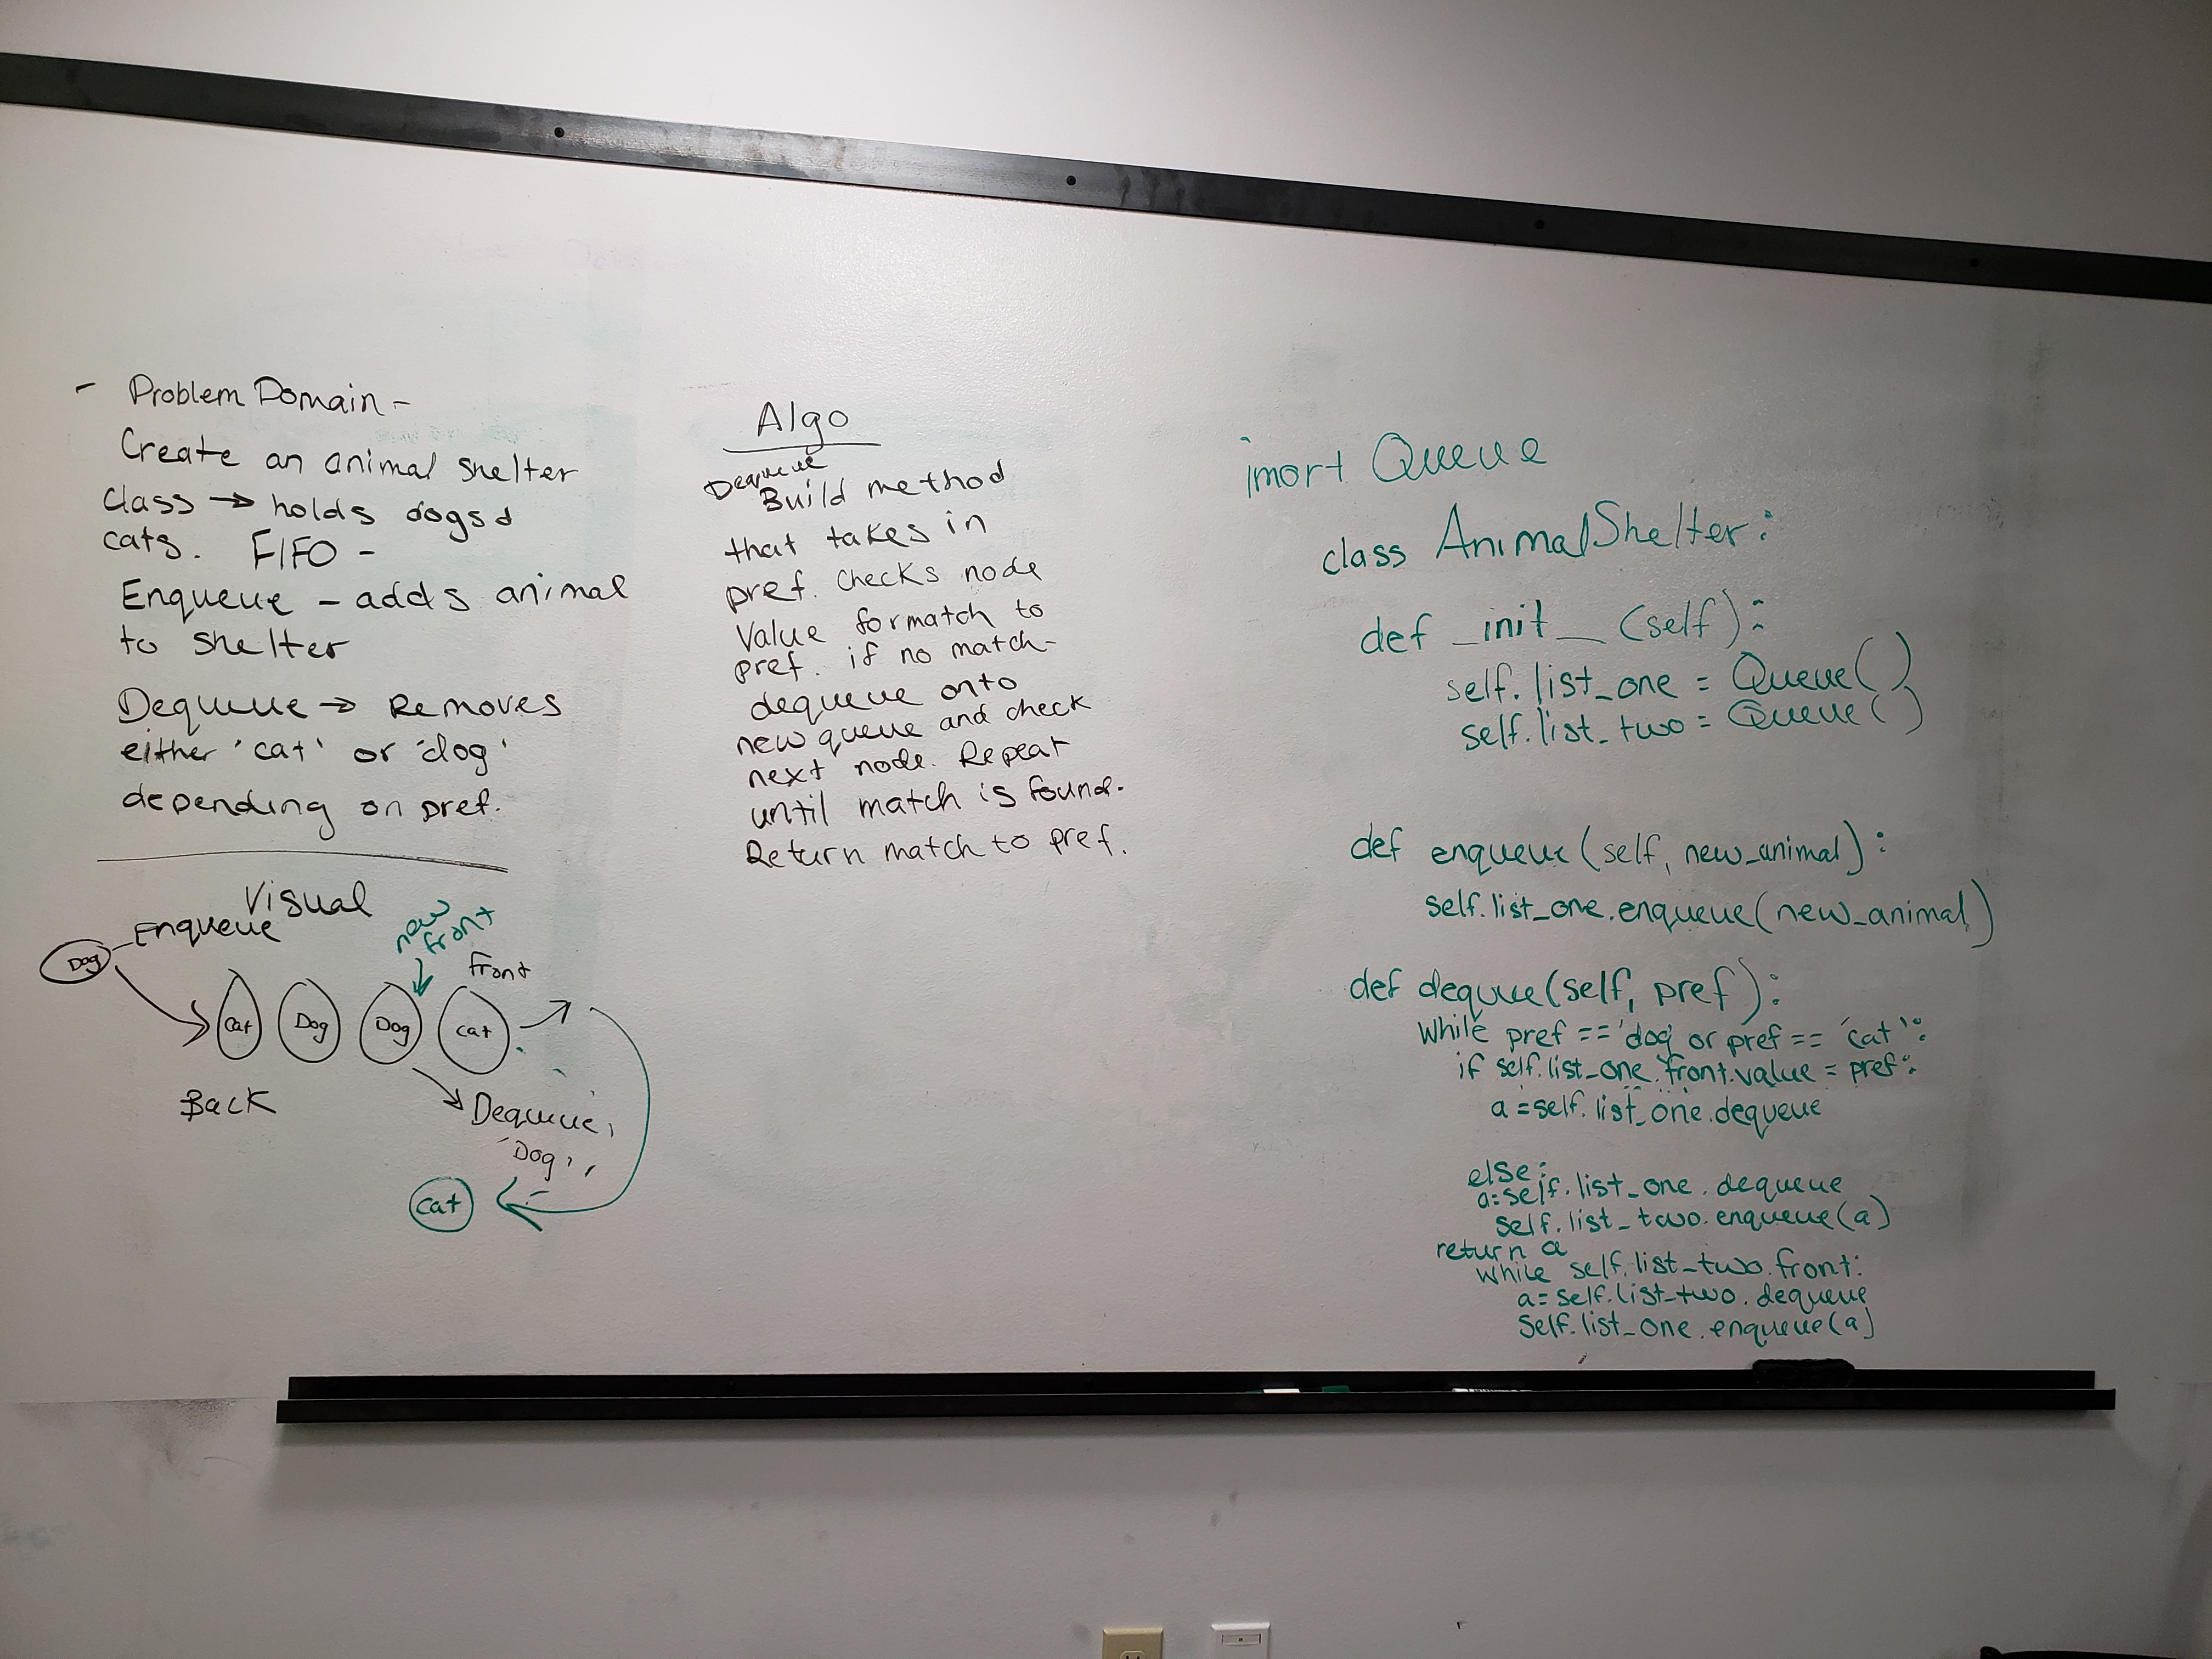 - Problem Domain -
Create an animal shelter
class → holds dogs &
cats. FIFO -
Enqueue - adds animal
to shelter
Dequeue → Removes
either 'cat' or 'dog'
depending on pref.
Visual
Enqueue
new
front
Dog
Front
Cat Dog Dog Cat
Back
Dequeue,
'Dog',
Cat
Algo
Dequeue
Build method
that takes in
pref. checks node
Value for match to
pref. if no match-
dequeue onto
new queue and check
next node. Repeat
until match is found.
Return match to pref.
imort Queue
class AnimalShelter:
def _init_ (self):
self.list_one = Queue()
self.list_two = Queue()
def enqueue(self, new_animal):
self.list_one.enqueue(new_animal)
def dequue(self, pref):
While pref == 'dog' or pref == 'cat':
if self.list_one.front.value = pref:
a = self.list_one.dequeue
else:
a = self.list_one.dequeue
self.list_two.enqueue(a)
return a
while self.list_two.front:
a = self.list_two.dequeue
self.list_one.enqueue(a)